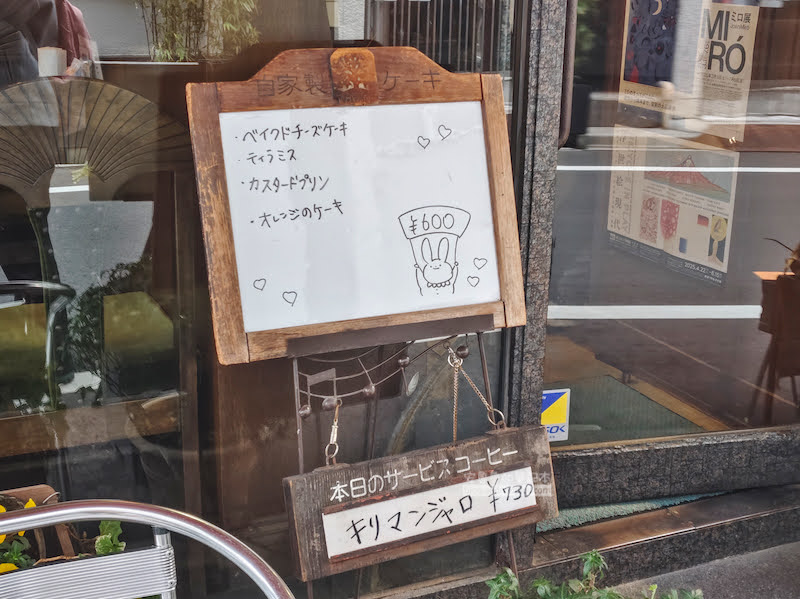 自家製 ケーキ
・ベイクドチーズケーキ
・ティラミス
・カスタードプリン
・オレンジのケーキ
¥600
本日のサービスコーヒー
キリマンジャロ ¥730
ミロ展
MIRÓ